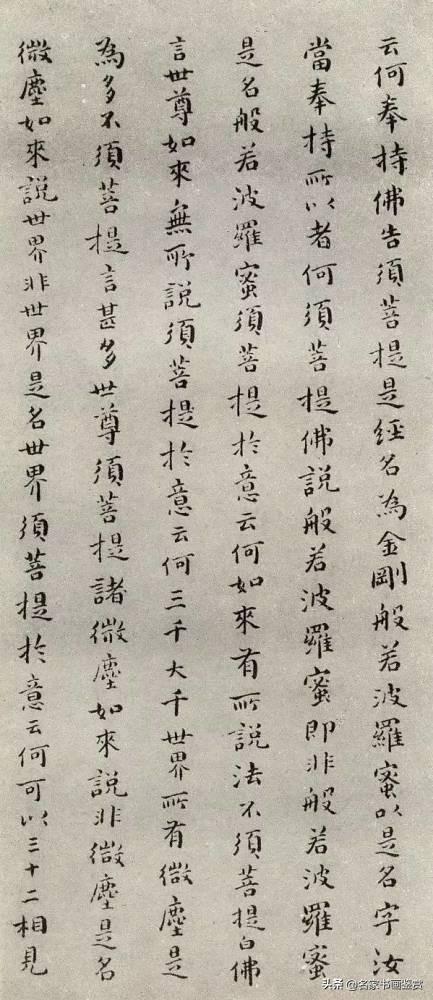 云何奉持佛告須菩提是經名為金剛般若波羅蜜以是名字汝
當奉持所以者何須菩提佛說般若波羅蜜即非般若波羅蜜
是名般若波羅蜜須菩提於意云何如來有所說法不須菩提白佛
言世尊如來無所說須菩提於意云何三千大千世界所有微塵是
為多不須菩提言甚多世尊須菩提諸微塵如來說非微塵是名
微塵如來說世界非世界是名世界須菩提於意云何可以三十二相見
头条 @名家书画鉴赏